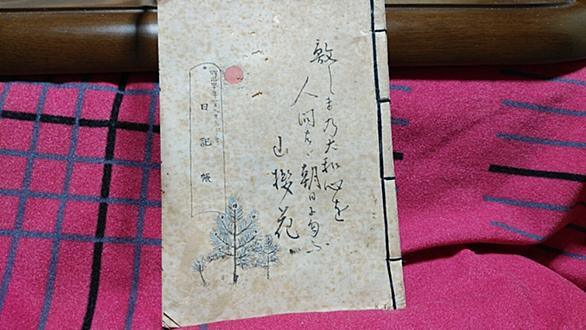 敷しま乃大和心を
人問はゝ朝日に匂ふ
山櫻花
日記帳